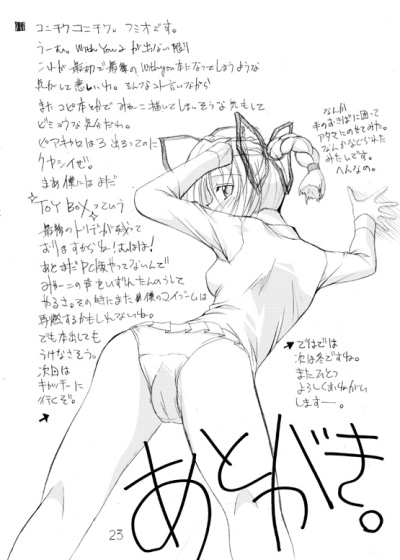 コニチワコニチワ。フミオです。
うーむ。With You2が出ない限り
これが最初で最後のWithyou本になってしまうような
気がして悲しいわ。そんなコト言いながら
またコピ本とかでみゃーこ描いてしまいそうな気もして
ビミョウな気分だわ。
ピアキャロは3出るってのに
クヤシイぜ。
まぁ僕にはまだ
TOY BOXっていう
最後のトリデが残って
おりますからね!むほほ!
あとまだPC版やってないんで
みゃーこの声をいずれたんのうして
やるさ。その時にまた僕のマイブームは
再燃するかもしれないね。
でも本出しても
うけなさそう。
次回は
キャッチーに
行くぞ。
なんか
手のおきばに困って
アタマにのせてみた。
なんかなぐられた
みたいです。
へんなの。
ではでは
次は冬ですね。
またひとつ
よろしくおねがい
しますー。
あとがき。
23